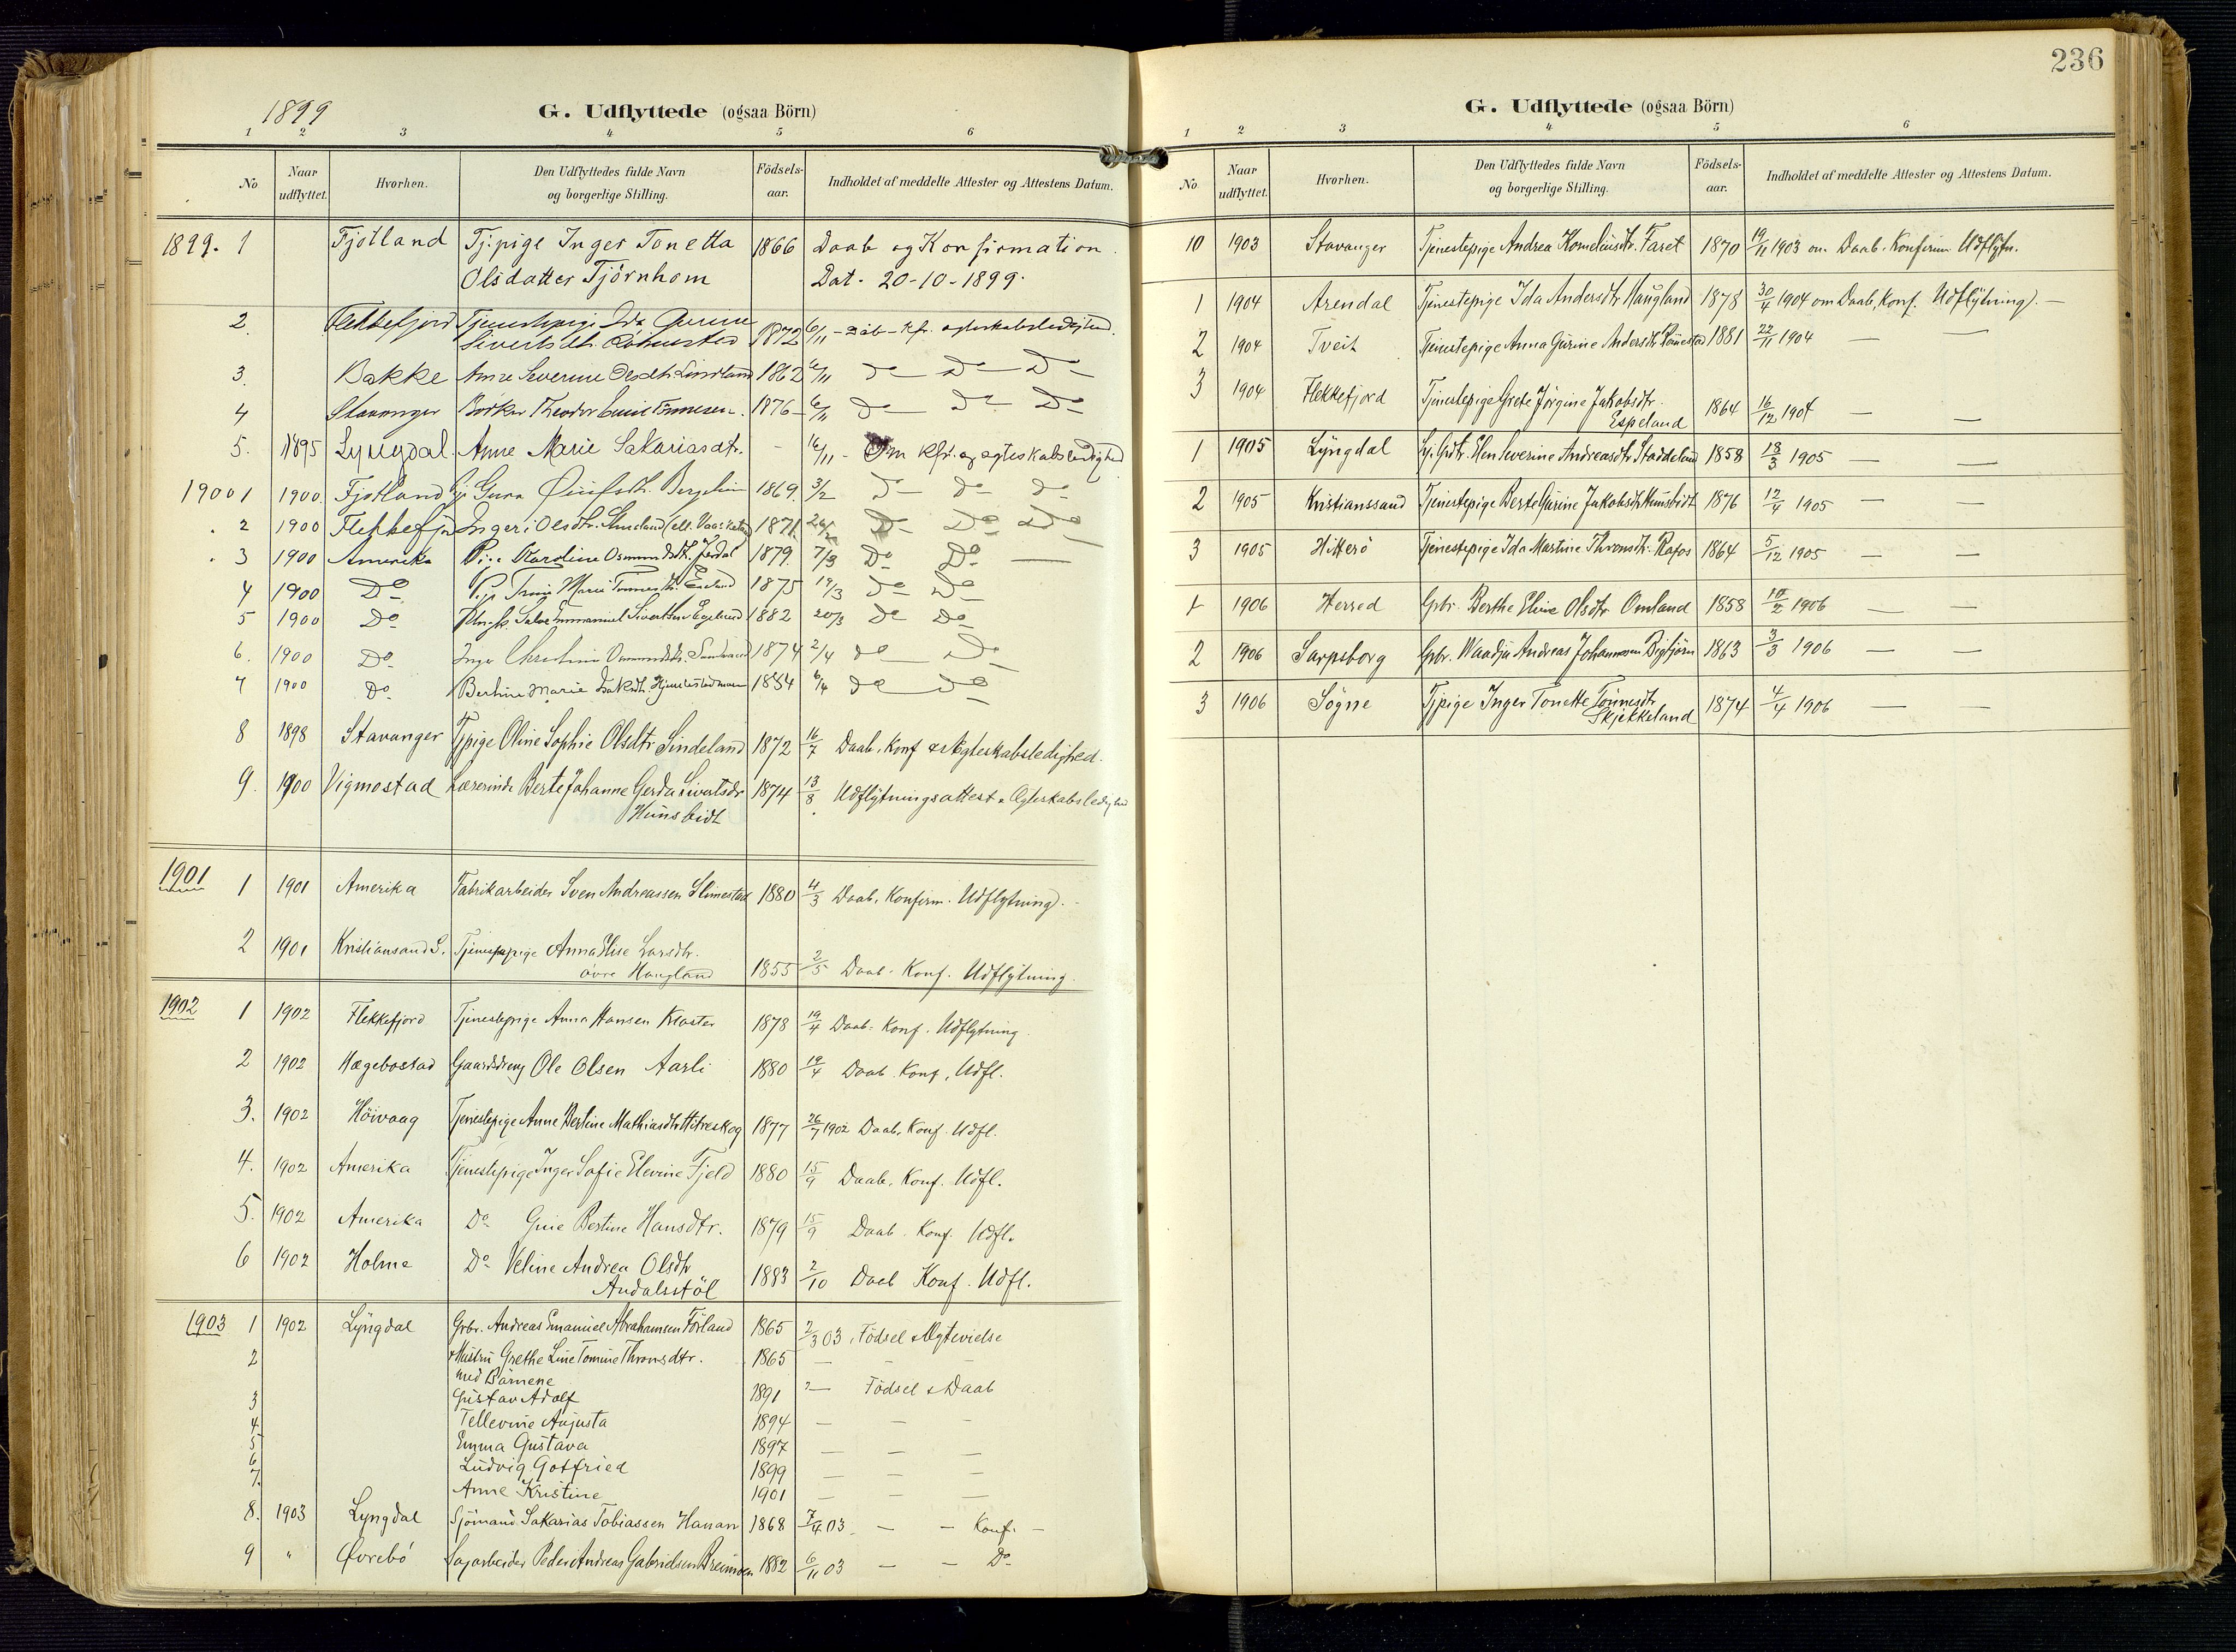 1899
G. Udflyttede (ogsaa Börn)
1 2 3 4 5 6
No Naar udflyttet. Hvorhen. Den Udflyttedes fulde Navn og borgerlige Stilling. Födsels-aar. Indholdet af meddelte Attester og Attestens Datum.
1899. 1 Fjotland Tjpige Inger Tonetta 1866 Daab og Konfirmation.
Olsdatter Tjörnhom Dat. 20-10-1899.
2. Flekkefjord Tjenestepige Ida
1872 6/11 - Dåb - Kfr. ogteskabsledighed.
3. Bakke Anne Severine Olsdtr. Lindland 1862 6/11 Do Do Do
4 Stavanger Bödker Theodor Tönnesen. 1876 6/11 Do Do Do
5. 1895 Lyngdal. Anne Marie Sakariasdtr. - 16/11 - Om Kfr. og egteskabsledighed
1900 1 1900. Fjotland 1869. 3/2 Do Do Do
2 1900 Flekkefjd Inger Olsdtr. 1871. Do Do Do
3 1900 Amerika Pige Karoline Osmundsdtr. 1879. 7/3 Do Do
4 1900 Do Marie 1875 19/3 Do Do
5 1900 Do Salve Emmanuel Sivertsen Egeland 1882 20/3 Do Do
6. 1900 Do Inger Christine Osmundsdtr. 1874 2/4 Do Do
7 1900 Do Bertine Marie 1854 6/4 Do Do
8 1898 Stavanger Tjpige Oline Sophie Olsdtr Sindeland 1872 16/7 Daab, Konf & Ægteskabsledighed.
9. 1900 Vigmostad Lærerinde Berte Johanne Gerda Sivertsdr 1874 13/8 Udflytningsattest & Ægteskabsledighed
Hunsbedt
1901 1 1901 Amerika Fabrikarbeider Sven Andreassen Slimestad 1880 4/3 Daab, Konfirm. Udflytning).
2 1901 Kristiansand S. Tjenestepige Anna Elise Larsdtr.
övre Haugland 1855 2/5 Daab. Konf. Udflytning.
1902 1 1902 Flekkefjord Tjenestepige Anna Hansen Kloster 1878 19/4 Daab. Konf. Udflytning
2 1902 Hægebostad Gaardsdreng Ole Olsen Aarli 1880 19/4 Daab. Konf, Udfl.
3. 1902 Höivaag Tjenestepige Anne Bertine Mathiasdtr 1877 26/7 1902 Daab, Konf. Udfl.
4. 1902 Amerika Tjenestepige Inger Sofie Elevine Fjeld 1880 15/9 Daab, Konf. Udfl.
5. 1902 Amerika Do Gine Bertine Hansdtr. 1879 15/9 Daab. Konf. Udfl.
6 1902 Holme Do Veline Andrea Olsdtr
Andalsstöl 1883 2/10 Daab Konf. Udfl.
1903 1 1902 Lyngdal Grbr. Andreas Emanuel Abrahamsen Förland 1865 2/3 03, Födsel & Ægtevielse
2 & Hustru Grethe Line Tomine Thronsdtr. 1865 — - -
med Börnene
3 Gustav Adolf 1891 — Födsel & Daab
4 Tellevine Augusta 1894 — — -
5 Emma Gustava 1897 — — —
6 Ludvig Gotfried 1899 — — —
7. Anne Kristine 1901 — — —
8. 1903 Lyngdal Sjömand Sakarias Tobiassen Hanan 1868 7/4 03. — - Konf. -
9 " Övrebö Sagarbeider Peder Andreas Gabrielsen 1882 6/11 03 — - Do
236
G. Udflyttede (ogsaa Börn)
1 2 3 4 5 6
No Naar udflyttet. Hvorhen. Den Udflyttedes fulde Navn og borgerlige Stilling. Födsels-aar. Indholdet af meddelte Attester og Attestens Datum.
10 1903 Stavanger Tjenestepige Andrea Korneliusdtr. Faret 1870 19/11 1903 om Daab. Konfirm Udflytn.
1 1904 Arendal Tjenestepige Ida Andersdtr Haugland 1878 30/4 1904 om Daab, Konf. Udflytning). —
2 1904 Tveit Tjenestepige Anna Gurine Andersdtr 1881 22/11 1904 — —
3 1904 Flekkefjord Tjenestepige Grete Jörgine Jakobsdtr.
Espeland 1864 16/12 1904 — —
1 1905 Lyngdal Elen Severine Andreasdtr Staddeland 1858 18/3 1905 — —
2 1905 Kristianssand Tjenestepige Berte Gurine Jakobsdtr Hunsbedt 1876 12/4 1905 — —
3 1905 Hitterö Tjenestepige Ida Martine Thronsdtr. Rafos 1864 5/12 1905 — —
1 1906 Herred Grbr. Berthe Eline Olsdtr Omland 1858 10/2 1906 — —
2 1906 Sarpsborg Grbr. Waadja Andreas Johannesen Bigtjörn 1863 3/3 1906 — —
3 1906 Sögne Tjpige Inger Tonette Tönnesdtr
Skjekkeland 1874 4/4 1906 — —